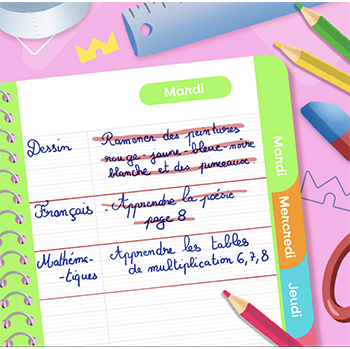 Mardi
Dessin
Ramener des peintures
rouge - jaune - bleue - noire
blanche et des pinceaux
Français
- Apprendre la poésie
page 8
Mathéma-
-tiques
Apprendre les tables
de multiplication 6, 7, 8
Mardi
Mercredi
Jeudi